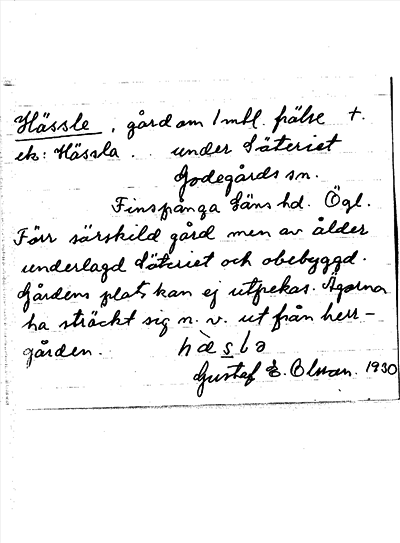 Hässle, gård om 1 mtl. frälse +.
ek: Hässla.. under Säteriet
Godegårds sn.
Finspånga läns hd. Ögl.
Förr särskild gård men av ålder
underlagd Säteriet och obebyggd.
Gårdens plats kan ej utpekas. Ägorna
ha sträckt sig n. v. ut från herr-
gården. hàslə
Gustaf E. Olsson. 1930